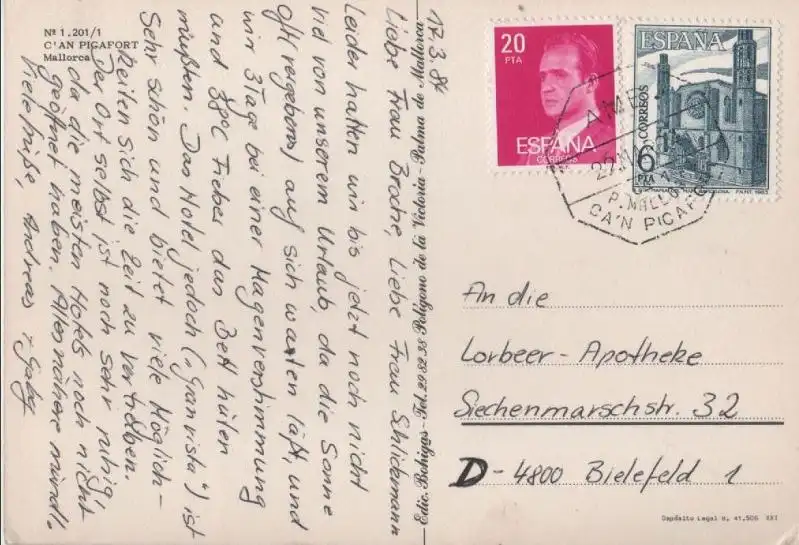 Nº 1.201/1
C'AN PIGAFORT
Mallorca
17.3.84
Liebe Frau Brodre, Liebe Frau Schliekmann
Leider hatten wir bis jetzt noch nicht
viel von unserem Urlaub, da die Sonne
oft (vergebens) auf sich warten läßt, und
wir 3 Tage bei einer Magenverstimmung
und 38°C Fieber das Bett hüten
mußten. Das Hotel jedoch ("Gran vista") ist
Sehr schön und bietet viele Möglich-
keiten sich die Zeit zu vertreiben.
Der Ort selbst ist noch sehr ruhig,
da die meisten Hotels noch nicht
geöffnet haben. Alles nähere mündl.
Viele Grüße, Andreas + Gaby
Palma de Mallorca
20
PTA
ESPAÑA
CORREOS
F.N.M.T.
ESPAÑA
CORREOS
6
PTA
C'AN PICAFORT
An die
Lorbeer-Apotheke
Siechenmarschstr. 32
D-4800 Bielefeld 1
Depósito Legal B. 41.506 XXI